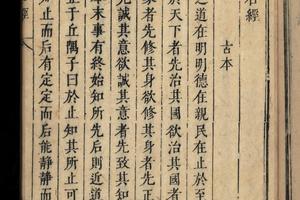 石經
古本
之道在明明德在親民在止於至
於天下者先治其國欲治其國者
家者先修其身欲修其身者先正
先誠其意欲誠其意者先致其知
本末事有終始知所先後則近道
止于丘隅子曰於止知其所止可
知止而后有定定而后能靜靜而
經